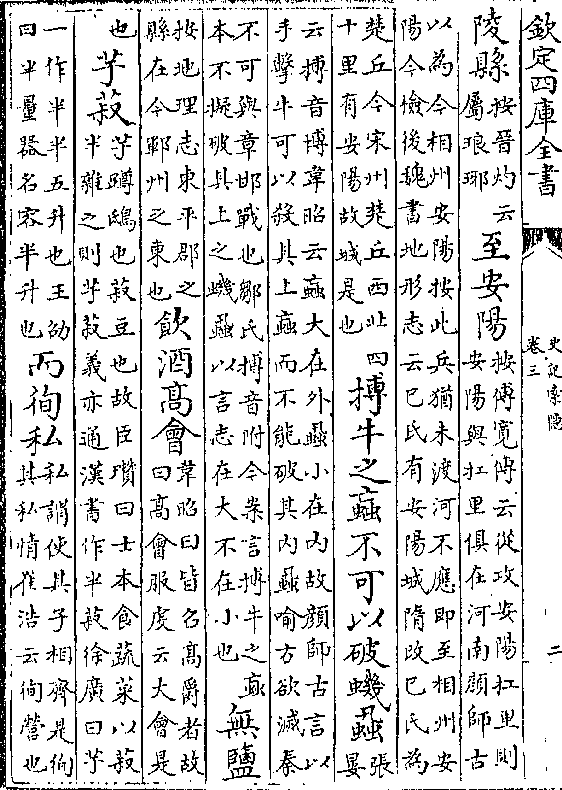 欽定四庫全書
史記索隱
卷三
二
陵縣按晉灼云屬琅琊至安陽按傅寛傳云從攻安陽扛里則安陽與扛里俱在河南顔師古
以為今相州安陽按此兵猶未渡河不應即至相州安
陽今檢後魏書地形志云巳氏有安陽城隋改巳氏為
楚丘今宋州楚丘西北四十里有安陽故城是也搏牛之䖟不可以破蟣蝨張晏
云搏音博韋昭云䖟大在外蝨小在内故顔師古言以
手擊牛可以殺其上䖟而不能破其内蝨喻方欲滅秦
不可與章邯戰也鄒氏搏音附今案言搏牛之䖟本不擬破其上之蟣蝨以言志在大不在小也無鹽
按地理志東平郡之縣在今鄆州之東也飲酒髙會韋昭曰皆名髙爵者故曰髙會服虔云大會是
也芋菽芋蹲鴟也菽豆也故臣瓉曰士本食蔬菜以菽半雜之則芋菽義亦通漢書作半菽徐廣曰芋
一作半半五升也王劭曰半量器名容半升也而徇私私謂使其子相齊是徇其私情崔浩云徇營也